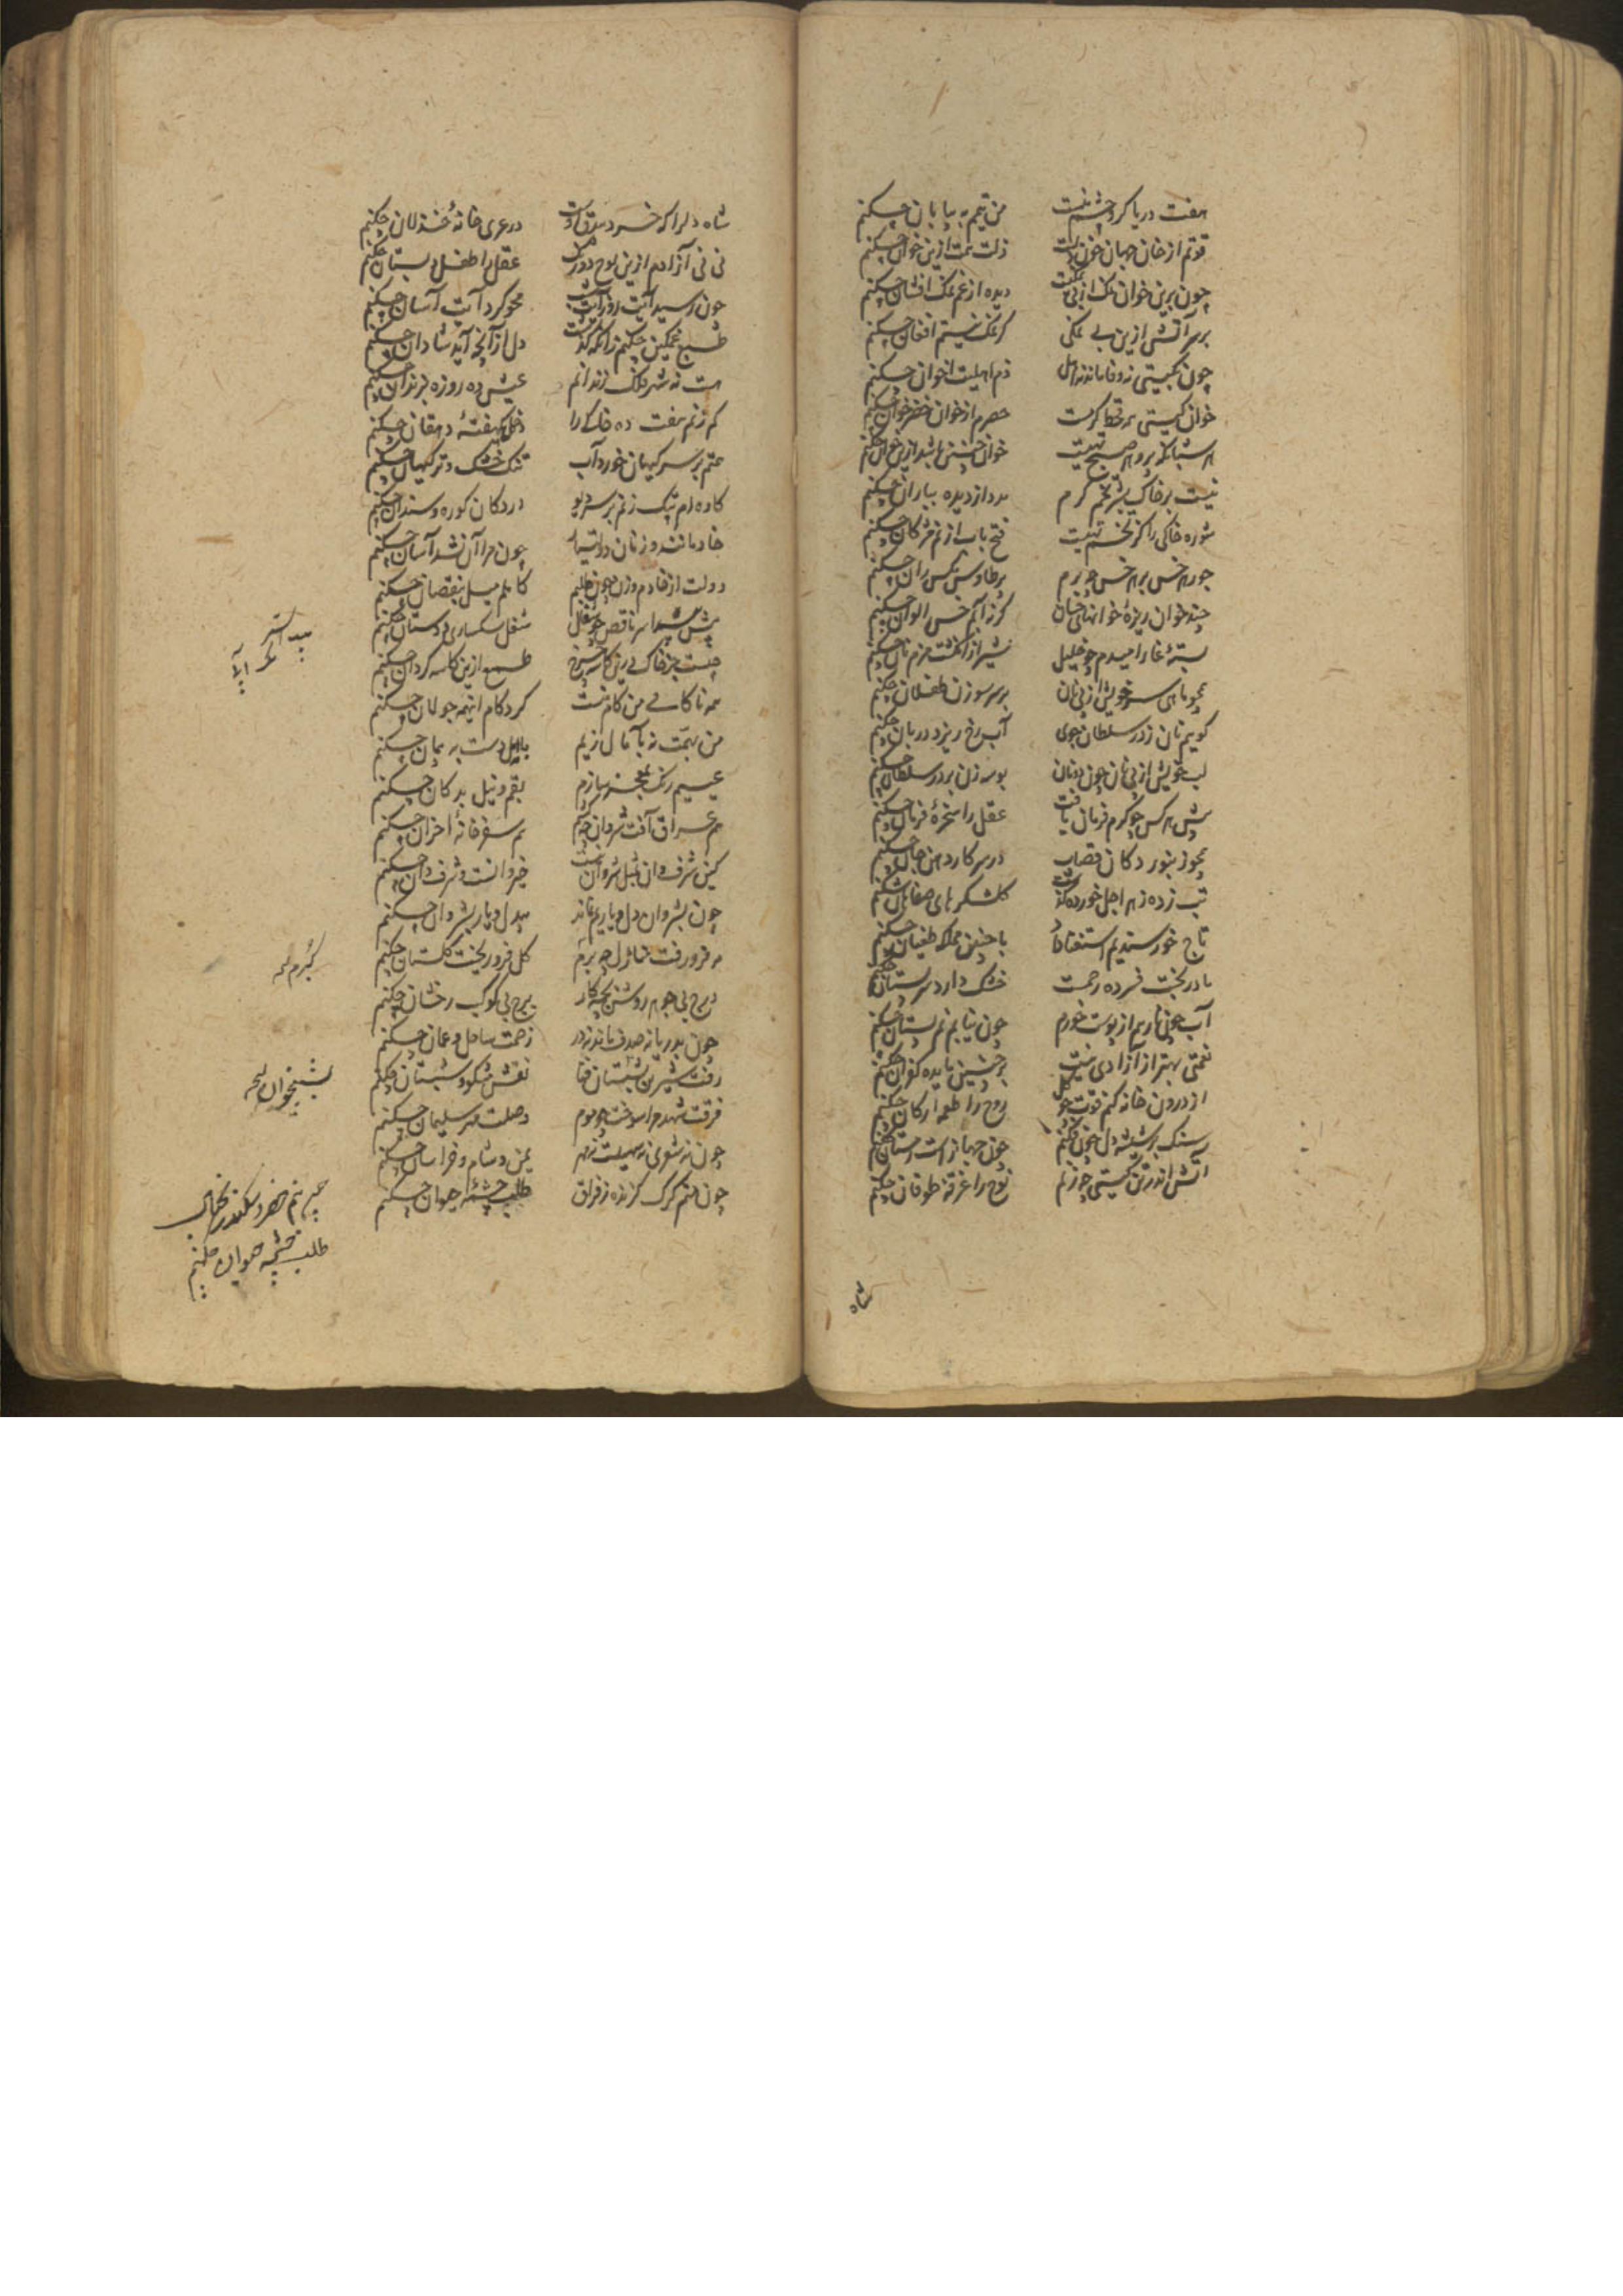 هفت دریا کرد چشم نیست من تیمم به بیابان چکنم
قوتم از خان جهان خون دلست زلت همت ازین خوان چکنم
چون برین خوان نمک از بی نمکیست دیده از غم نمک افشان چکنم
بر سر آتش ازین بی نمکی گر نمک نیستم افغان چکنم
چون بگیتی نه وفا ماند نه اهل ذم اهلیت اخوان چکنم
خوان گیتی همه قحط کرمست حصرم از خوان خضرخوان چکنم
نیست بر خاک بشر تخم کرم مدد از دیده بباران چکنم
شوره خاکی را کز تخم تهیست فتح باب از نم مژگان چکنم
جور هر خس برم هر خس چو برم بر طاوس مگس ران چکنم
چند خوان ریزهٔ خوانهای خسان گرنه آنم خس الوان چکنم
بستهٔ غار امیدم چو خلیل شیر از انگشت مزم نان چکنم
همچو ماهی سر خویش از پی نان بر سر سوزن طفلان چکنم
گویم نان ز در سلطان جوی آب رخ ریزد دربان چکنم
لب خویش از پی نان چون دونان بوسه زن بر در سلطان چکنم
پیش هر کس چو کرم فرمان یافت عقل را سخرهٔ فرمان چکنم
همچو زنبور دکان قصاب در سر کار دهن جان چکنم
تب زده زهر اجل خورده گذشت گلشکرهای صفاهان چکنم
تاج خرسندیم استغنا داد با چنین مملکه طغیان چکنم
مادر بخت فسرده رحمست خشک دارد سر پستان چکنم
آب چون نار هم از پوست خورم چون نیابم نم پستان چکنم
نعمتی بهتر از آزادی نیست بر چنین مایده کفران چکنم
از درون خانه کنم قوت چو نحل روح را طعمه ارکان چکنم
سنگ بر شیشه دل چون فکنم
آتش اندر تن کیتی چو زنم نوح را غرقهٔ طوفان چکنم
شاه
شاه دل را که خرد بیدق اوست در عری خانهٔ خذلان چکنم
نی نی آزادم ازین لوح دو رنگ عقل را طفل دبستان چکنم
چون رسید آیت روز آیت شب محو کرد آیت آسان چکنم
طبع غمگین چکنم زانکه گذشت دل از آنچه آید شادان چکنم
هست نه شهر فلک زندانم عیش ده روزه بزندان چکنم
کم زنم هفت ده خاکی را دخل یک هفتهٔ دهقان چکنم
عمم بر سر کیهان خورد آب ننگ خشک و تر کیهان چکنم
کاوه ام پتک زنم بر سر دیو در دکان کوره و سندان چکنم
خادمانند و زنان دولتیار چون مرا آن نشد آسان چکنم
دولت از خادم و زن چون طلبم کاملم میل بنقصان چکنم
پیش تیشه سر ناقص چو شغل شغل سکساری و دستان چکنم
چیست جز خاک درین کاسه چرخ طمع ازین کاسه گردان چکنم
همه ناکامی من کام منست گرد کام اینهمه جولان چکنم
من بهمت نه بآمال زیم با امل دست به پیمان چکنم
عیسیم رنگ بمعجز سازم بقم و نیل بدکان چکنم
هم عراق آفت شروان چو کم هم سفر خانهٔ احزان چکنم
کین شرف وان بمثل شروان است خیروانست و شرفوان چکنم
چون بشروان دل و یارم بنماند بیدل و یار بشروان چکنم
مه فرو رفت منازل چه برم گل فرو ریخت گلستان چکنم
درج بی جوهر روشن بچه کار برج بی کوکب رخشان چکنم
چون بدریا نه صدف ماند نه در زحمت ساحل و عمان چکنم
رفت شیرین بشبستان فنا نقش مشکو و شبستان چکنم
فرقت شهد مرا سوخت چو موم وصلت مهر سلیمان چکنم
چون نه شعری نه سهیلست نه مهر یمن و شام و خراسان چکنم
چون منم گرگ گزنده ز فراق طلب چشمهٔ حیوان چکنم
گیرم نسخه
بشبیخوان نسخه
چه برم خضر و سکندر بجهان
طلب چشمه حیوان چکنم